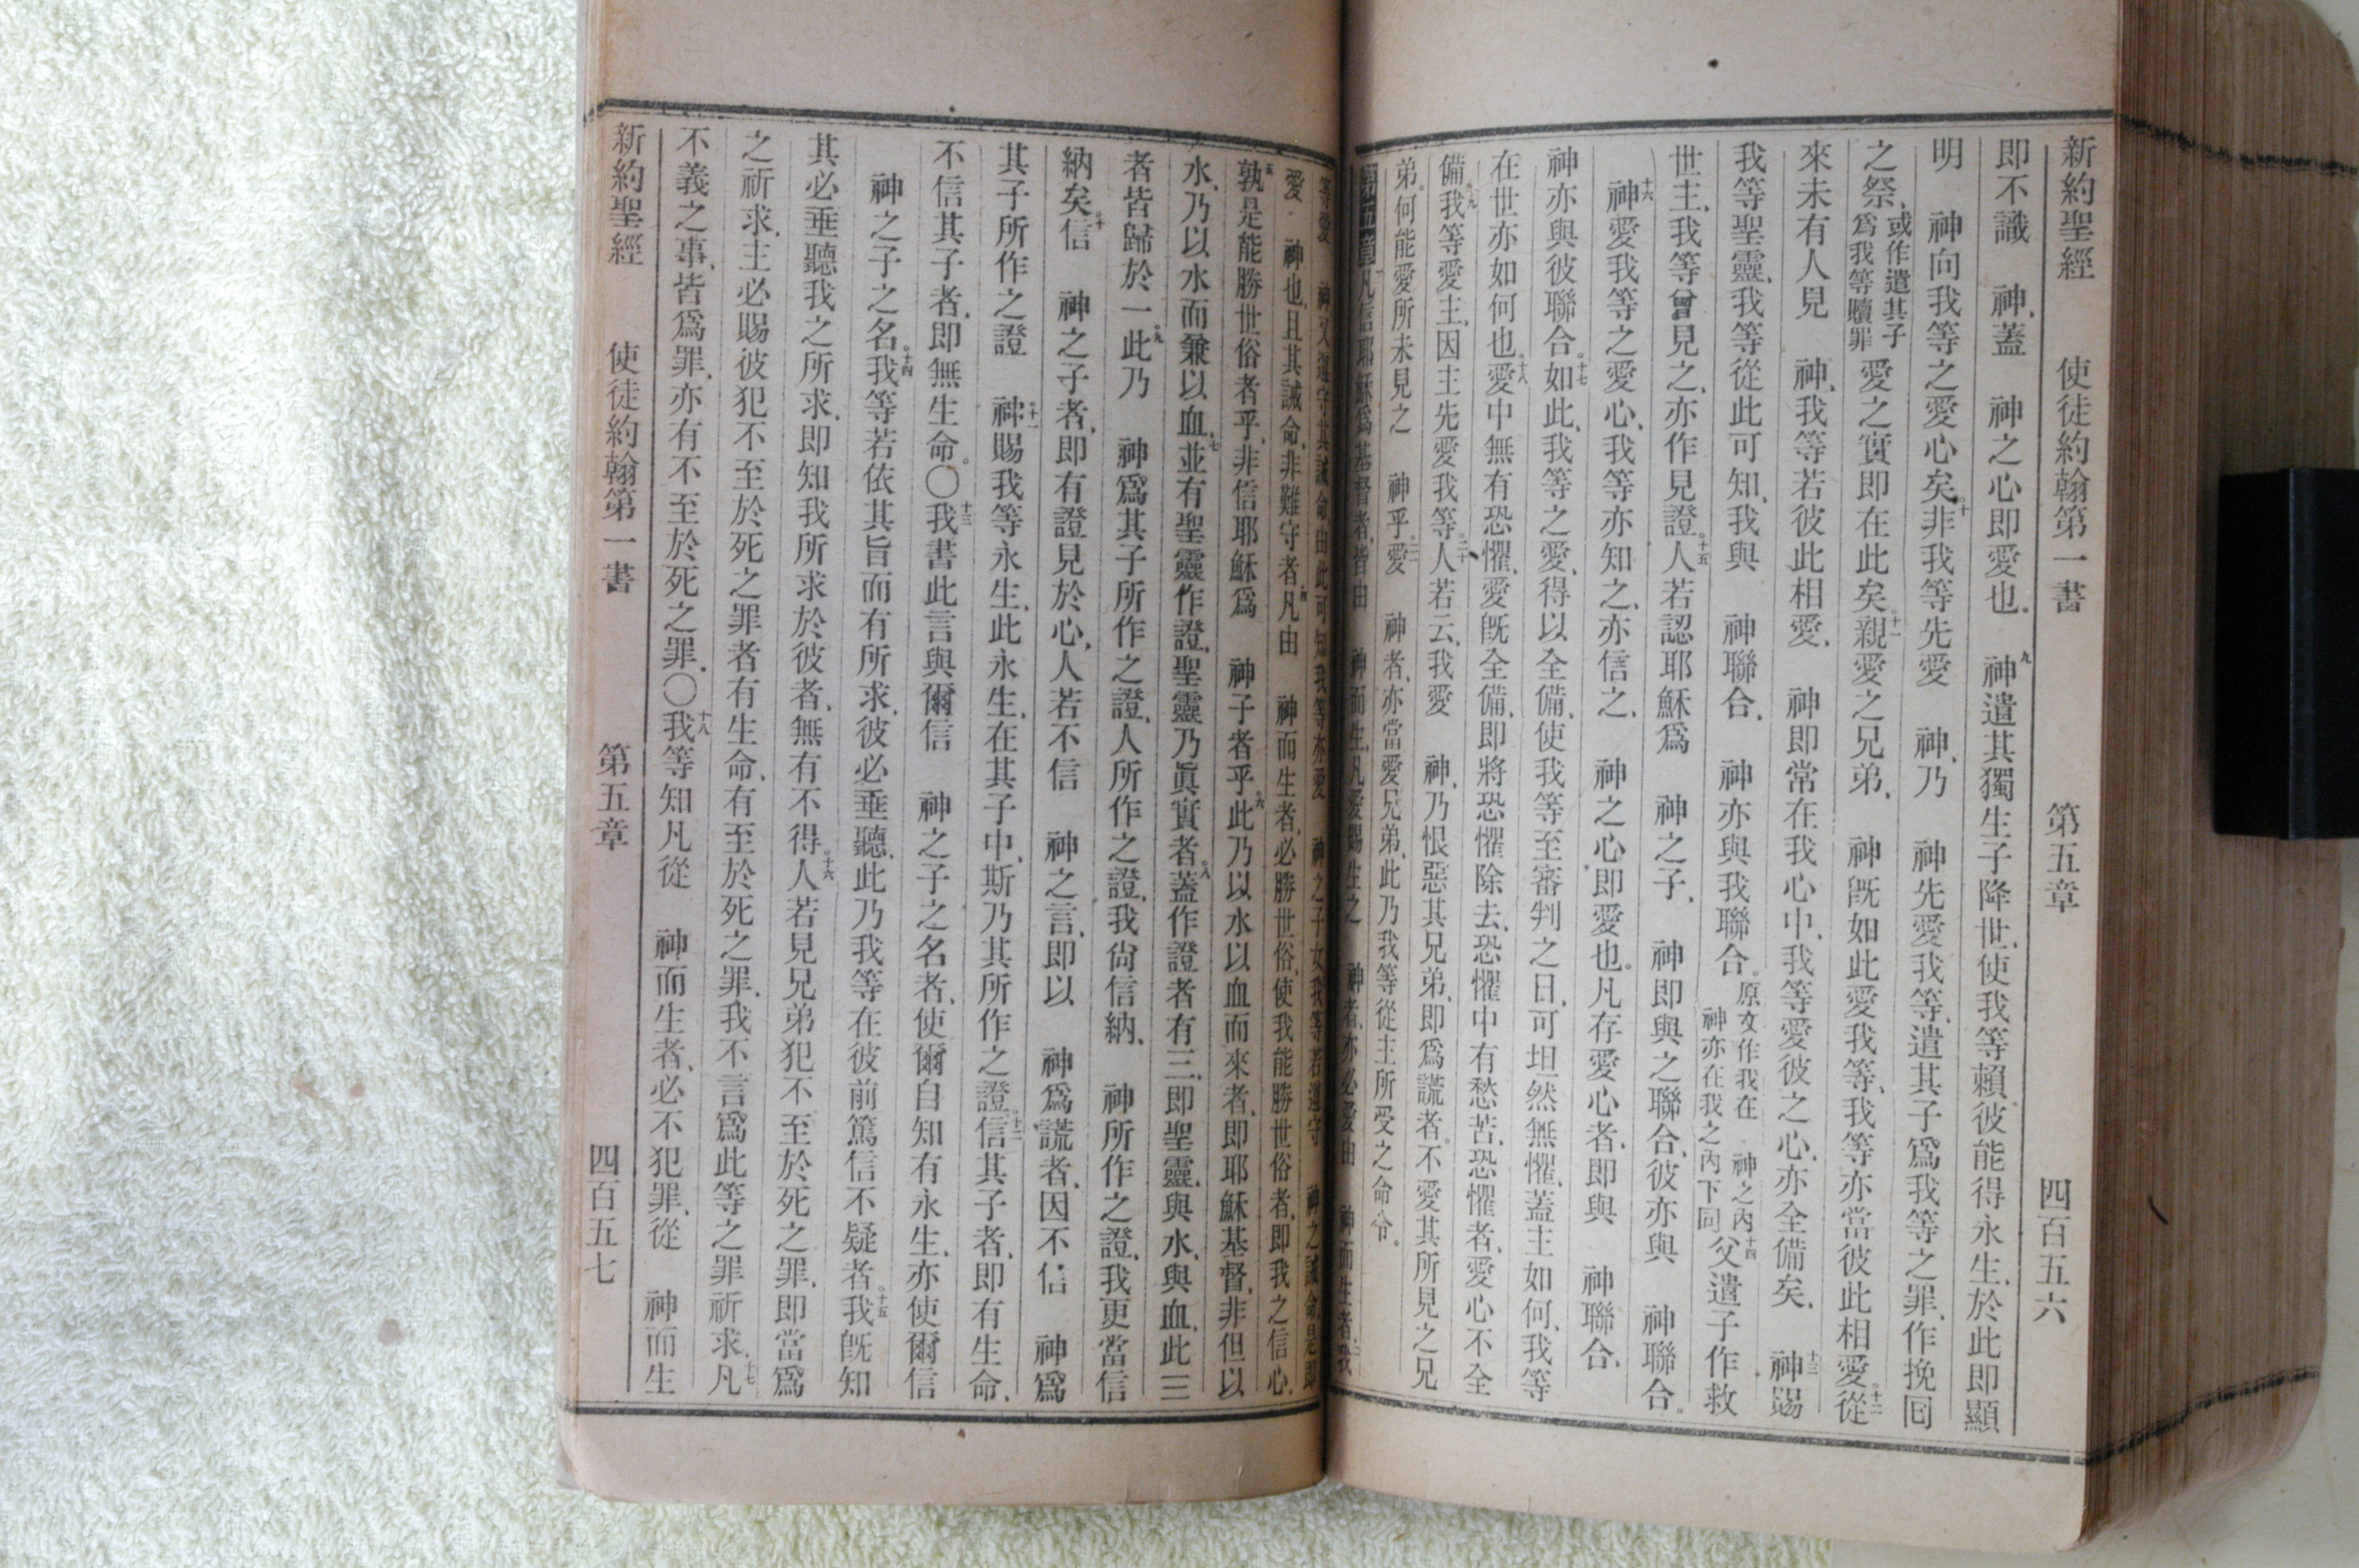 新約聖經　使徒約翰第一書　第五章　四百五六
即不識　神、蓋　神之心即愛也。九　神遣其獨生子降世、使我等賴彼能得永生、於此即顯
明　神向我等之愛心矣、十非我等先愛　神、乃　神先愛我等、遣其子爲我等之罪、作挽回
之祭、或作遣其子爲我等贖罪愛之實即在此矣。十一親愛之兄弟、　神旣如此愛我等、我等亦當彼此相愛。十二從
來未有人見　神、我等若彼此相愛、　神即常在我心中、我等愛彼之心、亦全備矣、十三　神賜
我等聖靈、我等從此可知、我與　神聯合、　神亦與我聯合。原文作我在　神之內　神亦在我之內下同、十四父遣子作救
世主、我等曾見之、亦作見證。十五人若認耶穌爲　神之子、　神即與之聯合、彼亦與　神聯合。
十六　神愛我等之愛心、我等亦知之、亦信之、　神之心即愛也。凡存愛心者、即與　神聯合、
神亦與彼聯合。十七如此、我等之愛、得以全備、使我等至審判之日、可坦然無懼、蓋主如何、我等
在世亦如何也。十八愛中無有恐懼、愛旣全備、即將恐懼除去、恐懼中有愁苦、恐懼者、愛心不全
備。十九我等愛主、因主先愛我等。二十人若云、我愛　神、乃恨惡其兄弟、即爲謊者。不愛其所見之兄
弟。何能愛所未見之　神乎。二一愛　神者、亦當愛兄弟、此乃我等從主所受之命令。
第五章　凡信耶穌爲基督者、皆由　神而生、凡愛賜生之　神者、亦必愛由　神而生者、二我
等愛　神、又遵守其誡命、由此可知我等亦愛　神之子女、我等若遵守　神之誡命、是即
愛　神也、且其誡命、非難守者、四凡由　神而生者、必勝世俗、使我能勝世俗者、即我之信心、
五孰是能勝世俗者乎、非信耶穌爲　神子者乎。六此乃以水以血而來者、即耶穌基督、非但以
水、乃以水而兼以血、七並有聖靈作證、聖靈乃眞實者。八蓋作證者有三、即聖靈、與水、與血、此三
者皆歸於一。九此乃　神爲其子所作之證、人所作之證、我尙信納、　神所作之證、我更當信
納矣。十信　神之子者、即有證見於心、人若不信　神之言、即以　神爲謊者、因不信　神爲
其子所作之證　十一神賜我等永生、此永生、在其子中、斯乃其所作之證。十二信其子者、即有生命、
不信其子者、即無生命。〇十三我書此言與爾信　神之子之名者、使爾自知有永生、亦使爾信
神之子之名。十四我等若依其旨而有所求、彼必垂聽、此乃我等在彼前篤信不疑者。十五我旣知
其必垂聽我之所求、即知我所求於彼者、無有不得。十六人若見兄弟犯不至於死之罪、即當爲
之祈求、主必賜彼犯不至於死之罪者有生命、有至於死之罪、我不言爲此等之罪祈求、十七凡
不義之事、皆爲罪、亦有不至於死之罪。〇十八我等知凡從　神而生者、必不犯罪、從　神而生
新約聖經　使徒約翰第一書　第五章　四百五七